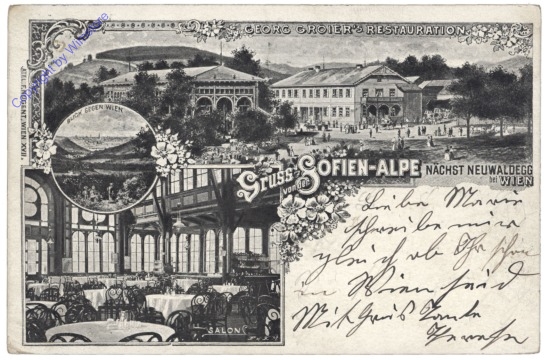 GEORG GROIER'S RESTAURATION
BLICK GEGEN WIEN
Gruss von der SOFIEN-ALPE
NÄCHST NEUWALDEGG
bei WIEN
SALON
Liebe Marie
schreibe mir
gleich ob Ihr schon
in Wien seid
Mit Gruß Tante
Therese
Copyright by
WIEN, XVII.